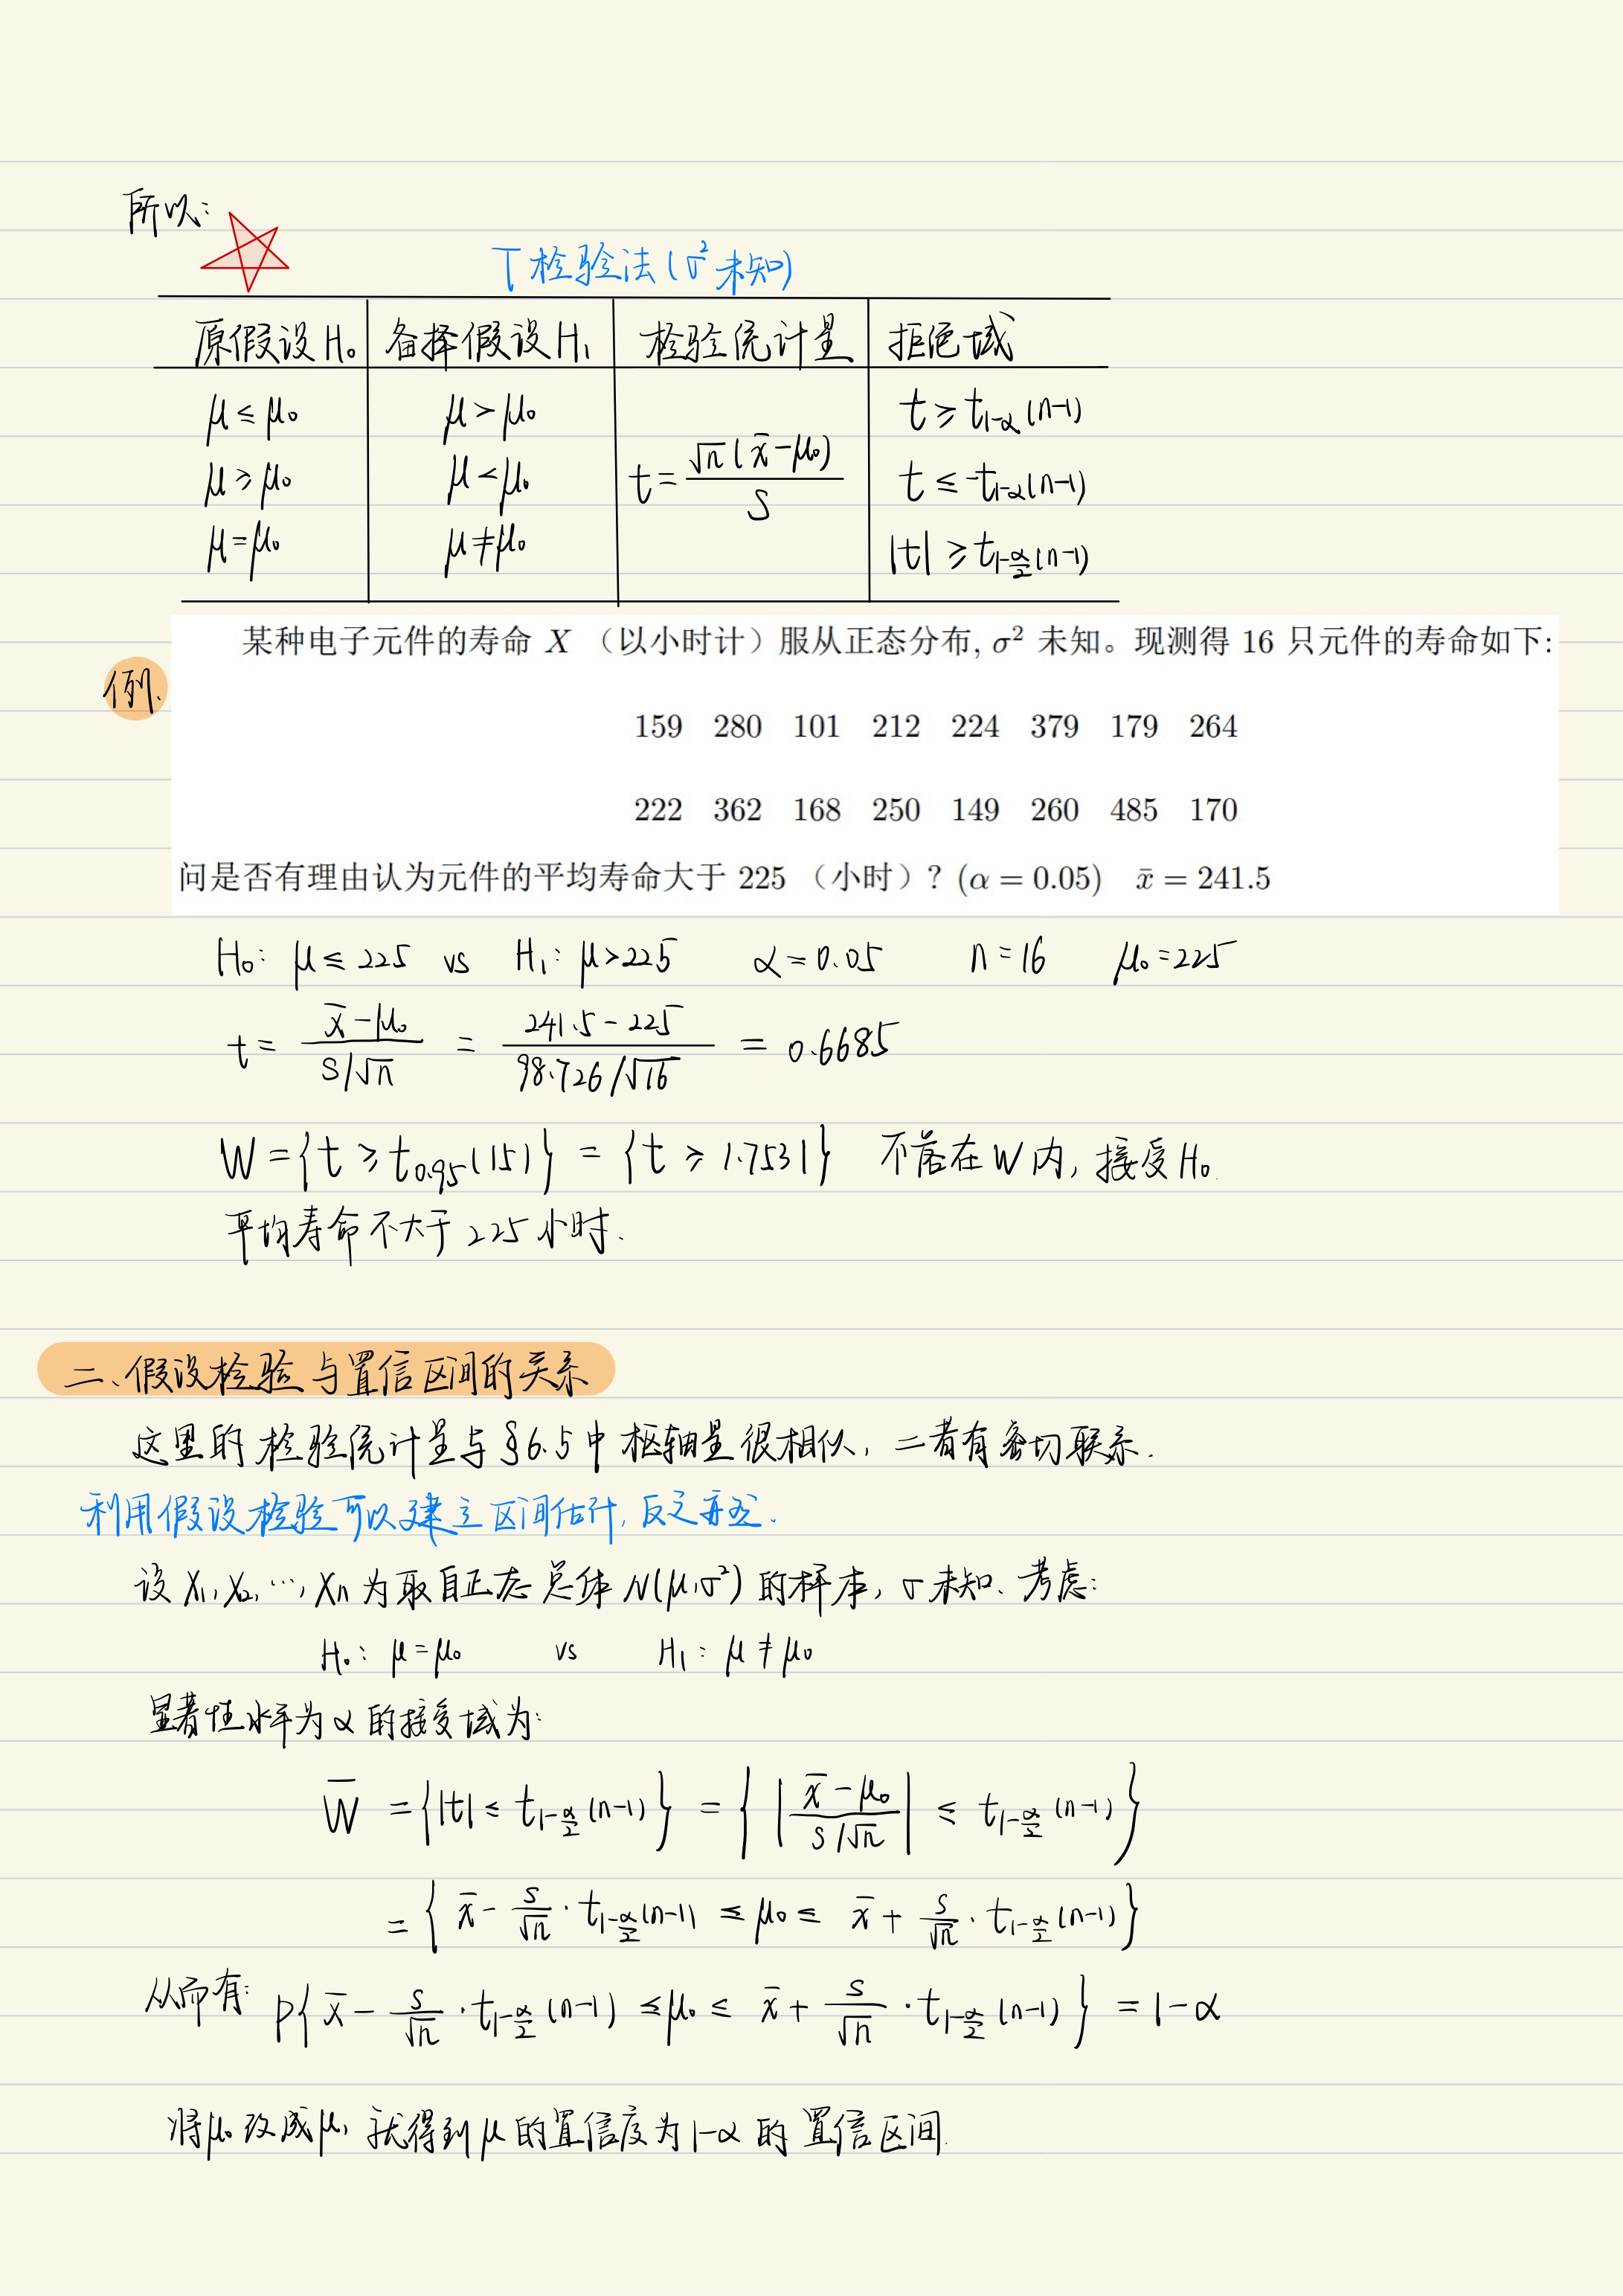 所以:
T检验法(σ²未知)
原假设H₀ 备择假设H₁ 检验统计量 拒绝域
μ≤μ₀ μ>μ₀ t≥t₁₋α(n-1)
μ≥μ₀ μ<μ₀ t=√n(x̄-μ₀)/S t≤-t₁₋α(n-1)
μ=μ₀ μ≠μ₀ |t|≥t_{1-α/2}(n-1)
某种电子元件的寿命 X （以小时计）服从正态分布, σ² 未知。现测得 16 只元件的寿命如下:
例.
159 280 101 212 224 379 179 264
222 362 168 250 149 260 485 170
问是否有理由认为元件的平均寿命大于 225 （小时）? (α = 0.05) x̄ = 241.5
H₀: μ≤225 vs H₁: μ>225 α=0.05 n=16 μ₀=225
t = (x̄-μ₀)/(S/√n) = (241.5-225)/(98.726/√16) = 0.6685
W={t≥t_{0.95}(15)} = {t≥1.7531} 不落在W内, 接受H₀.
平均寿命不大于225小时.
二、假设检验与置信区间的关系
这里的检验统计量与§6.5中枢轴量很相似, 二者有密切联系.
利用假设检验可以建立区间估计, 反之亦然.
设X₁,X₂,…,Xn为取自正态总体N(μ,σ²)的样本, σ未知. 考虑:
H₀: μ=μ₀ vs H₁: μ≠μ₀
显著性水平为α的接受域为:
W̄ ={|t|≤t_{1-α/2}(n-1)} = {|(x̄-μ₀)/(S/√n)| ≤ t_{1-α/2}(n-1)}
= {x̄ - S/√n · t_{1-α/2}(n-1) ≤ μ₀ ≤ x̄ + S/√n · t_{1-α/2}(n-1)}
从而有: P{x̄ - S/√n · t_{1-α/2}(n-1) ≤ μ₀ ≤ x̄ + S/√n · t_{1-α/2}(n-1)} = 1-α
将μ₀改成μ, 就得到μ的置信度为1-α的置信区间.